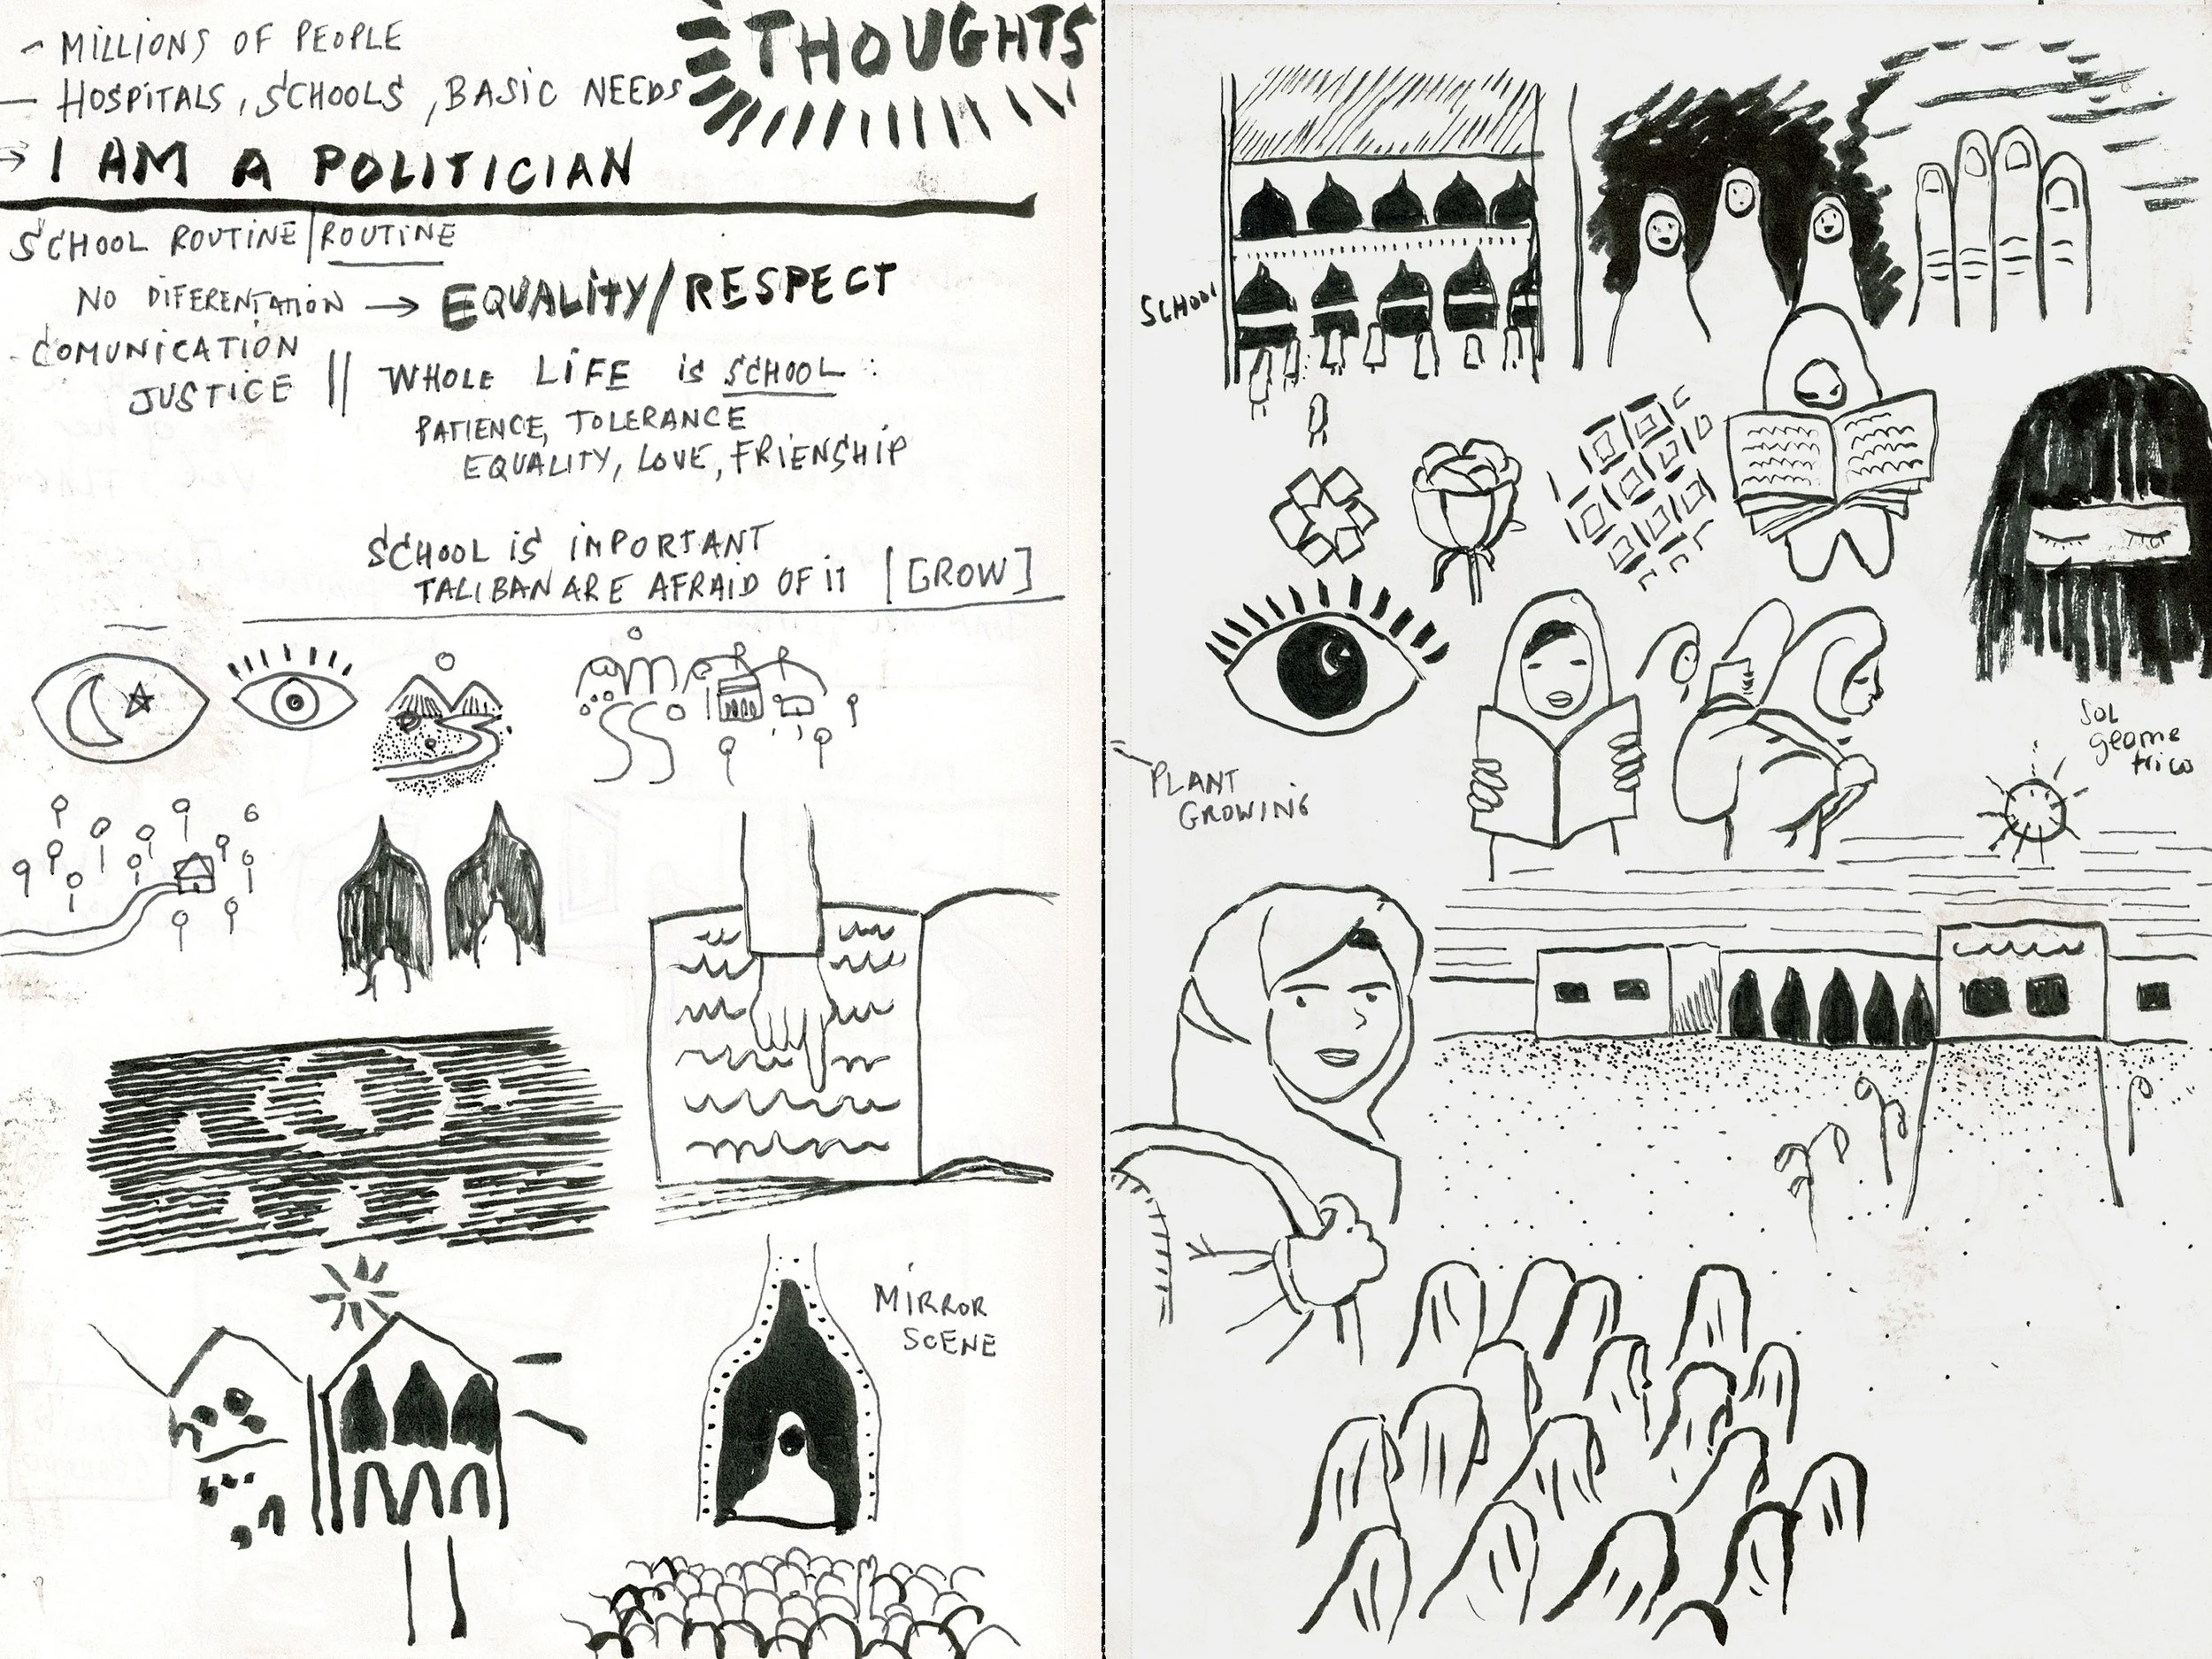 - MILLIONS OF PEOPLE
THOUGHTS
- HOSPITALS, SCHOOLS, BASIC NEEDS
→ I AM A POLITICIAN
SCHOOL ROUTINE | ROUTINE
NO DIFERENTATION → EQUALITY/RESPECT
- COMUNICATION
JUSTICE || WHOLE LIFE is SCHOOL :
PATIENCE, TOLERANCE
EQUALITY, LOVE, FRIENSHIP
SCHOOL IS IMPORTANT
TALIBAN ARE AFRAID OF IT | [GROW]
MIRROR
SCENE
SCHOOL
PLANT
GROWING
SOL
geome
trico